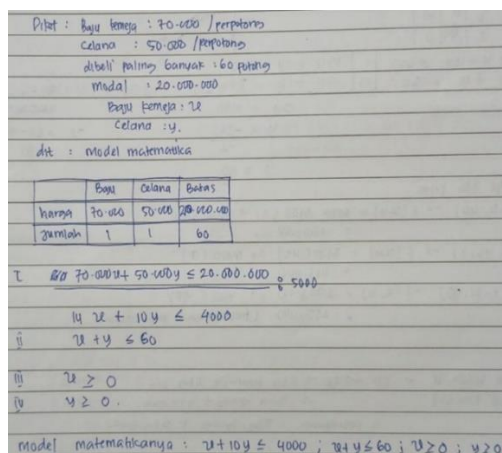 Diket : Baju kemeja : 70.000 /perpotong
Celana : 50.000 /perpotong
dibeli paling banyak : 60 potong
modal : 20.000.000
Baju kemeja : x
Celana : y.
dit : model matematika
Baju Celana Batas
harga 70.000 50.000 20.000.000
Jumlah 1 1 60
I 70.000x + 50.000y ≤ 20.000.000 : 5000
14 x + 10y ≤ 4000
ii x + y ≤ 60
iii x ≥ 0
iv y ≥ 0.
model matematikanya : x+10y ≤ 4000 ; x+y ≤ 60 ; x≥0 ; y≥0